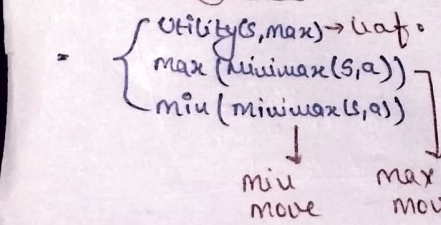 = { Utility(s, max) → leaf.
max (Minimax(s,a))
min (Minimax(s,a))
min max
move mov